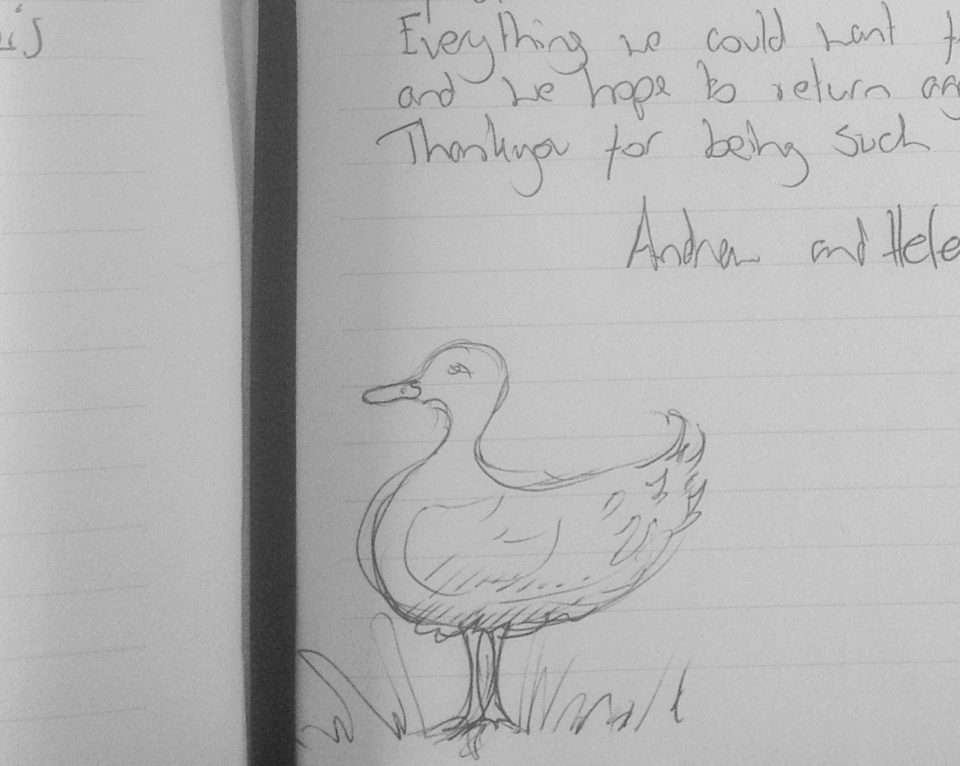 Everything we could want
and we hope to return
Thankyou for being such
Andrew and Hele